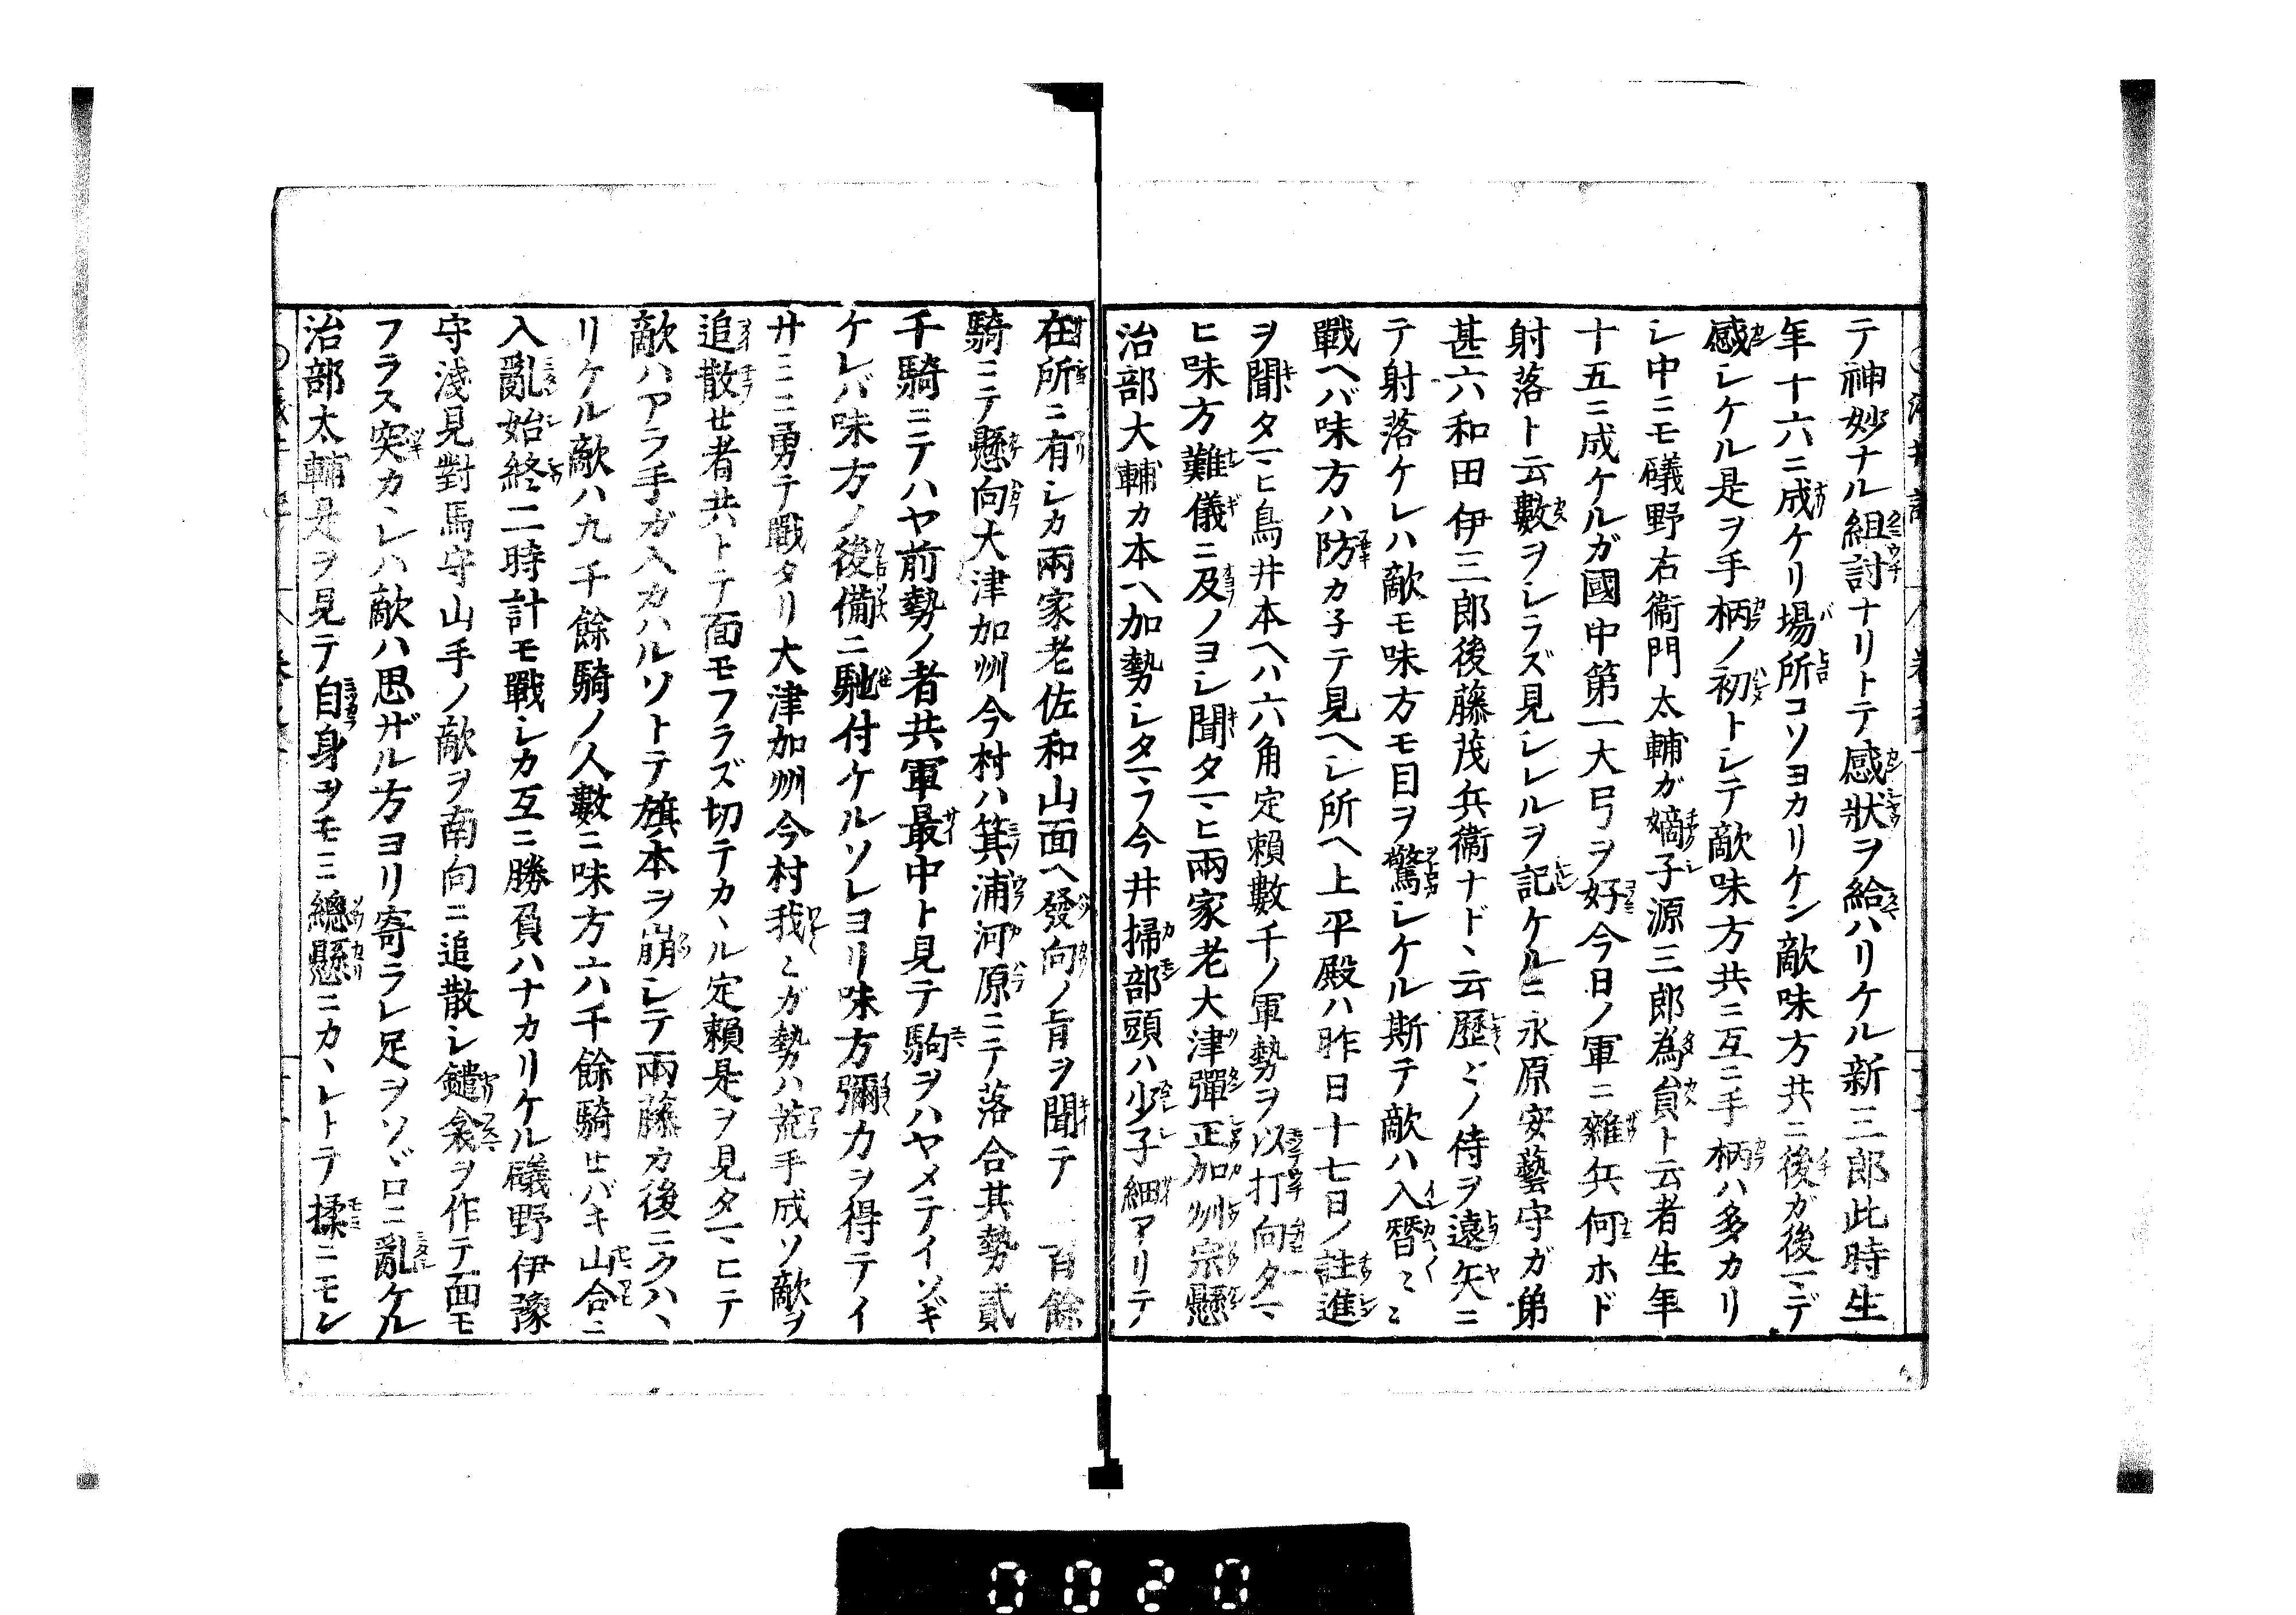 テ神妙ナル組討ナリトテ感狀ヲ給ハリケル新三郎此時生
年十六ニ成ケリ場所コソヨカリケン敵味方共ニ後ガ後マデ
感シケル是ヲ手柄ノ初トシテ敵味方共ニ互ニ手柄ハ多カリ
シ中ニモ礒野右衞門太輔ガ嫡子源三郎為員ト云者生年
十五ニ成ケルガ國中第一大弓ヲ好今日ノ軍ニ雜兵何ホド
射落ト云數ヲシラズ見シレルヲ記ケルニ永原安藝守ガ弟
甚六和田伊三郎後藤茂兵衞ナド、云歷〻ノ侍ヲ遠矢ニ
テ射落ケレハ敵モ味方モ目ヲ驚シケル斯テ敵ハ入替〻〻
戰ヘバ味方ハ防カ子テ見ヘシ所ヘ上平殿ハ昨日十七日ノ註進
ヲ聞タマヒ鳥井本ヘハ六角定賴數千ノ軍勢ヲ以打向タマ
ヒ味方難儀ニ及ノヨシ聞タマヒ兩家老大津彈正加州宗懸
治部大輔カ本ヘ加勢シタマフ今井掃部頭ハ少子細アリテ
在所ニ有シカ兩家老佐和山面ヘ發向ノ旨ヲ聞テ二百餘
騎ニテ懸向大津加州今村ハ箕浦河原ニテ落合其勢貳
千騎ニテハヤ前勢ノ者共軍最中ト見テ駒ヲハヤメテイソギ
ケレバ味方ノ後備ニ馳付ケルソレヨリ味方彌力ヲ得テイ
サミニ勇テ戰タリ大津加州今村我〻ガ勢ハ荒手成ソ敵ヲ
追散せ者共トテ面モフラズ切テカヽル定賴是ヲ見タマヒテ
敵ハアラ手ガ入カハルソトテ旗本ヲ崩シテ兩藤カ後ニクハヽ
リケル敵ハ九千餘騎ノ人數ニ味方六千餘騎せバキ山合ニ
入亂始終二時計モ戰シカ互ニ勝負ハナカリケル礒野伊豫
守淺見對馬守山手ノ敵ヲ南向ニ追散シ鑓衾ヲ作テ面モ
フラス突カヽレハ敵ハ思ザル方ヨリ寄ラレ足ヲソヾロニ亂ケル
治部太輔是ヲ見テ自身ヲモミ總懸ニカヽレトテ揉ニモン
0020